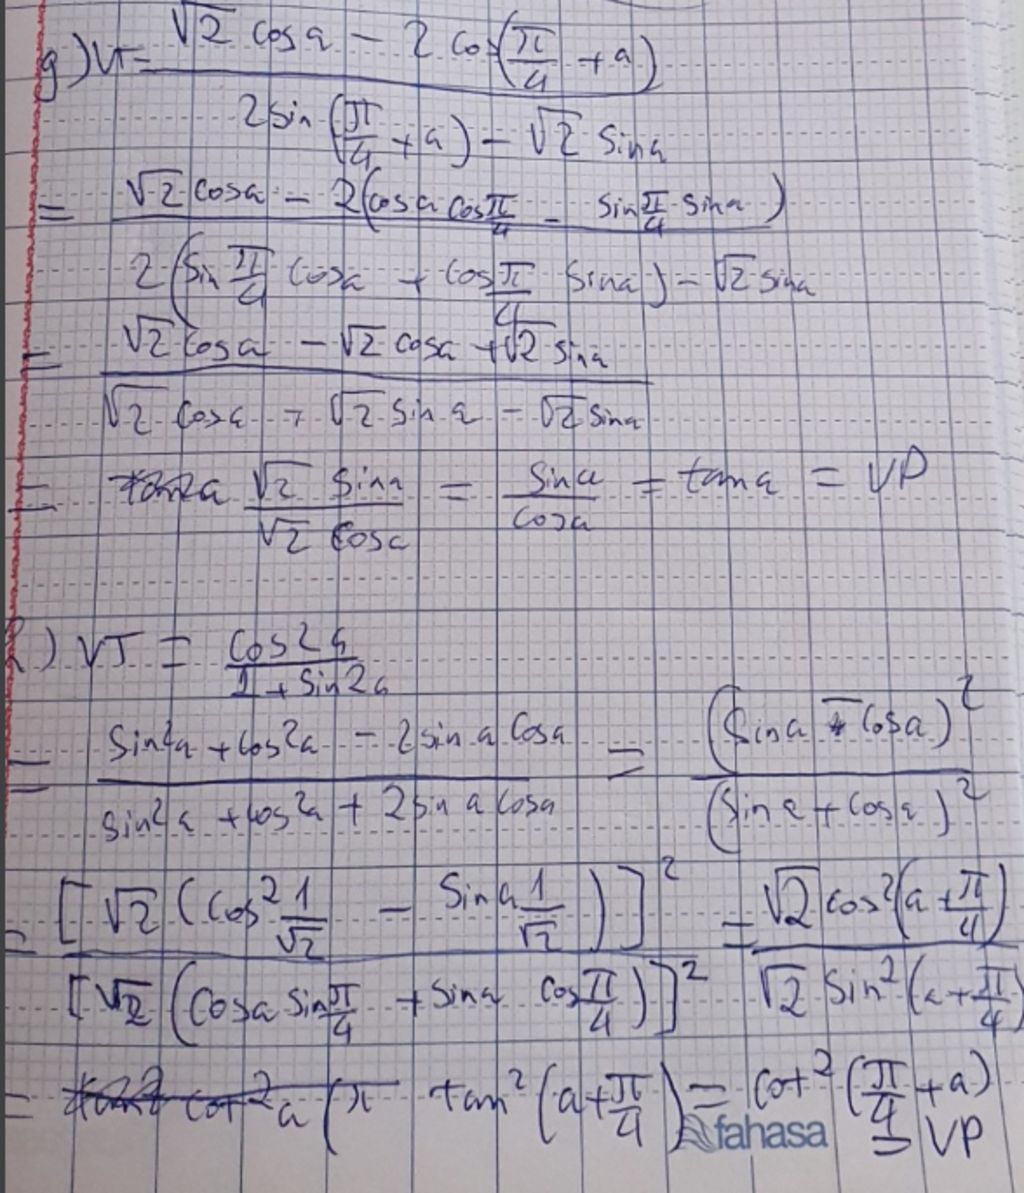 g) VT = (√2 cos a − 2 cos(π/4 + a)) / (2 sin(π/4 + a) − √2 sin a)
= (√2 cos a − 2(cos a cos π/4 − sin π/4 · sin a)) / (2(sin π/4 cos a + cos π/4 sin a) − √2 sin a)
= (√2 cos a − √2 cos a + √2 sin a) / (√2 cos a + √2 sin a − √2 sin a)
= (√2 sin a) / (√2 cos a) = sin a / cos a = tan a = VP
h) VT = cos 2a / (1 + sin 2a)
= (sin²a + cos²a − 2 sin a cos a) / (sin²a + cos²a + 2 sin a cos a) = (sin a − cos a)² / (sin a + cos a)²
= [√2 (cos² 1/√2 − sin a 1/√2)]² / [√2 (cos a sin π/4 + sin a cos π/4)]² = √2 cos²(a + π/4) / √2 sin²(a + π/4)
= tan²(a + π/4) = cot²(π/4 + a)
fahasa = VP